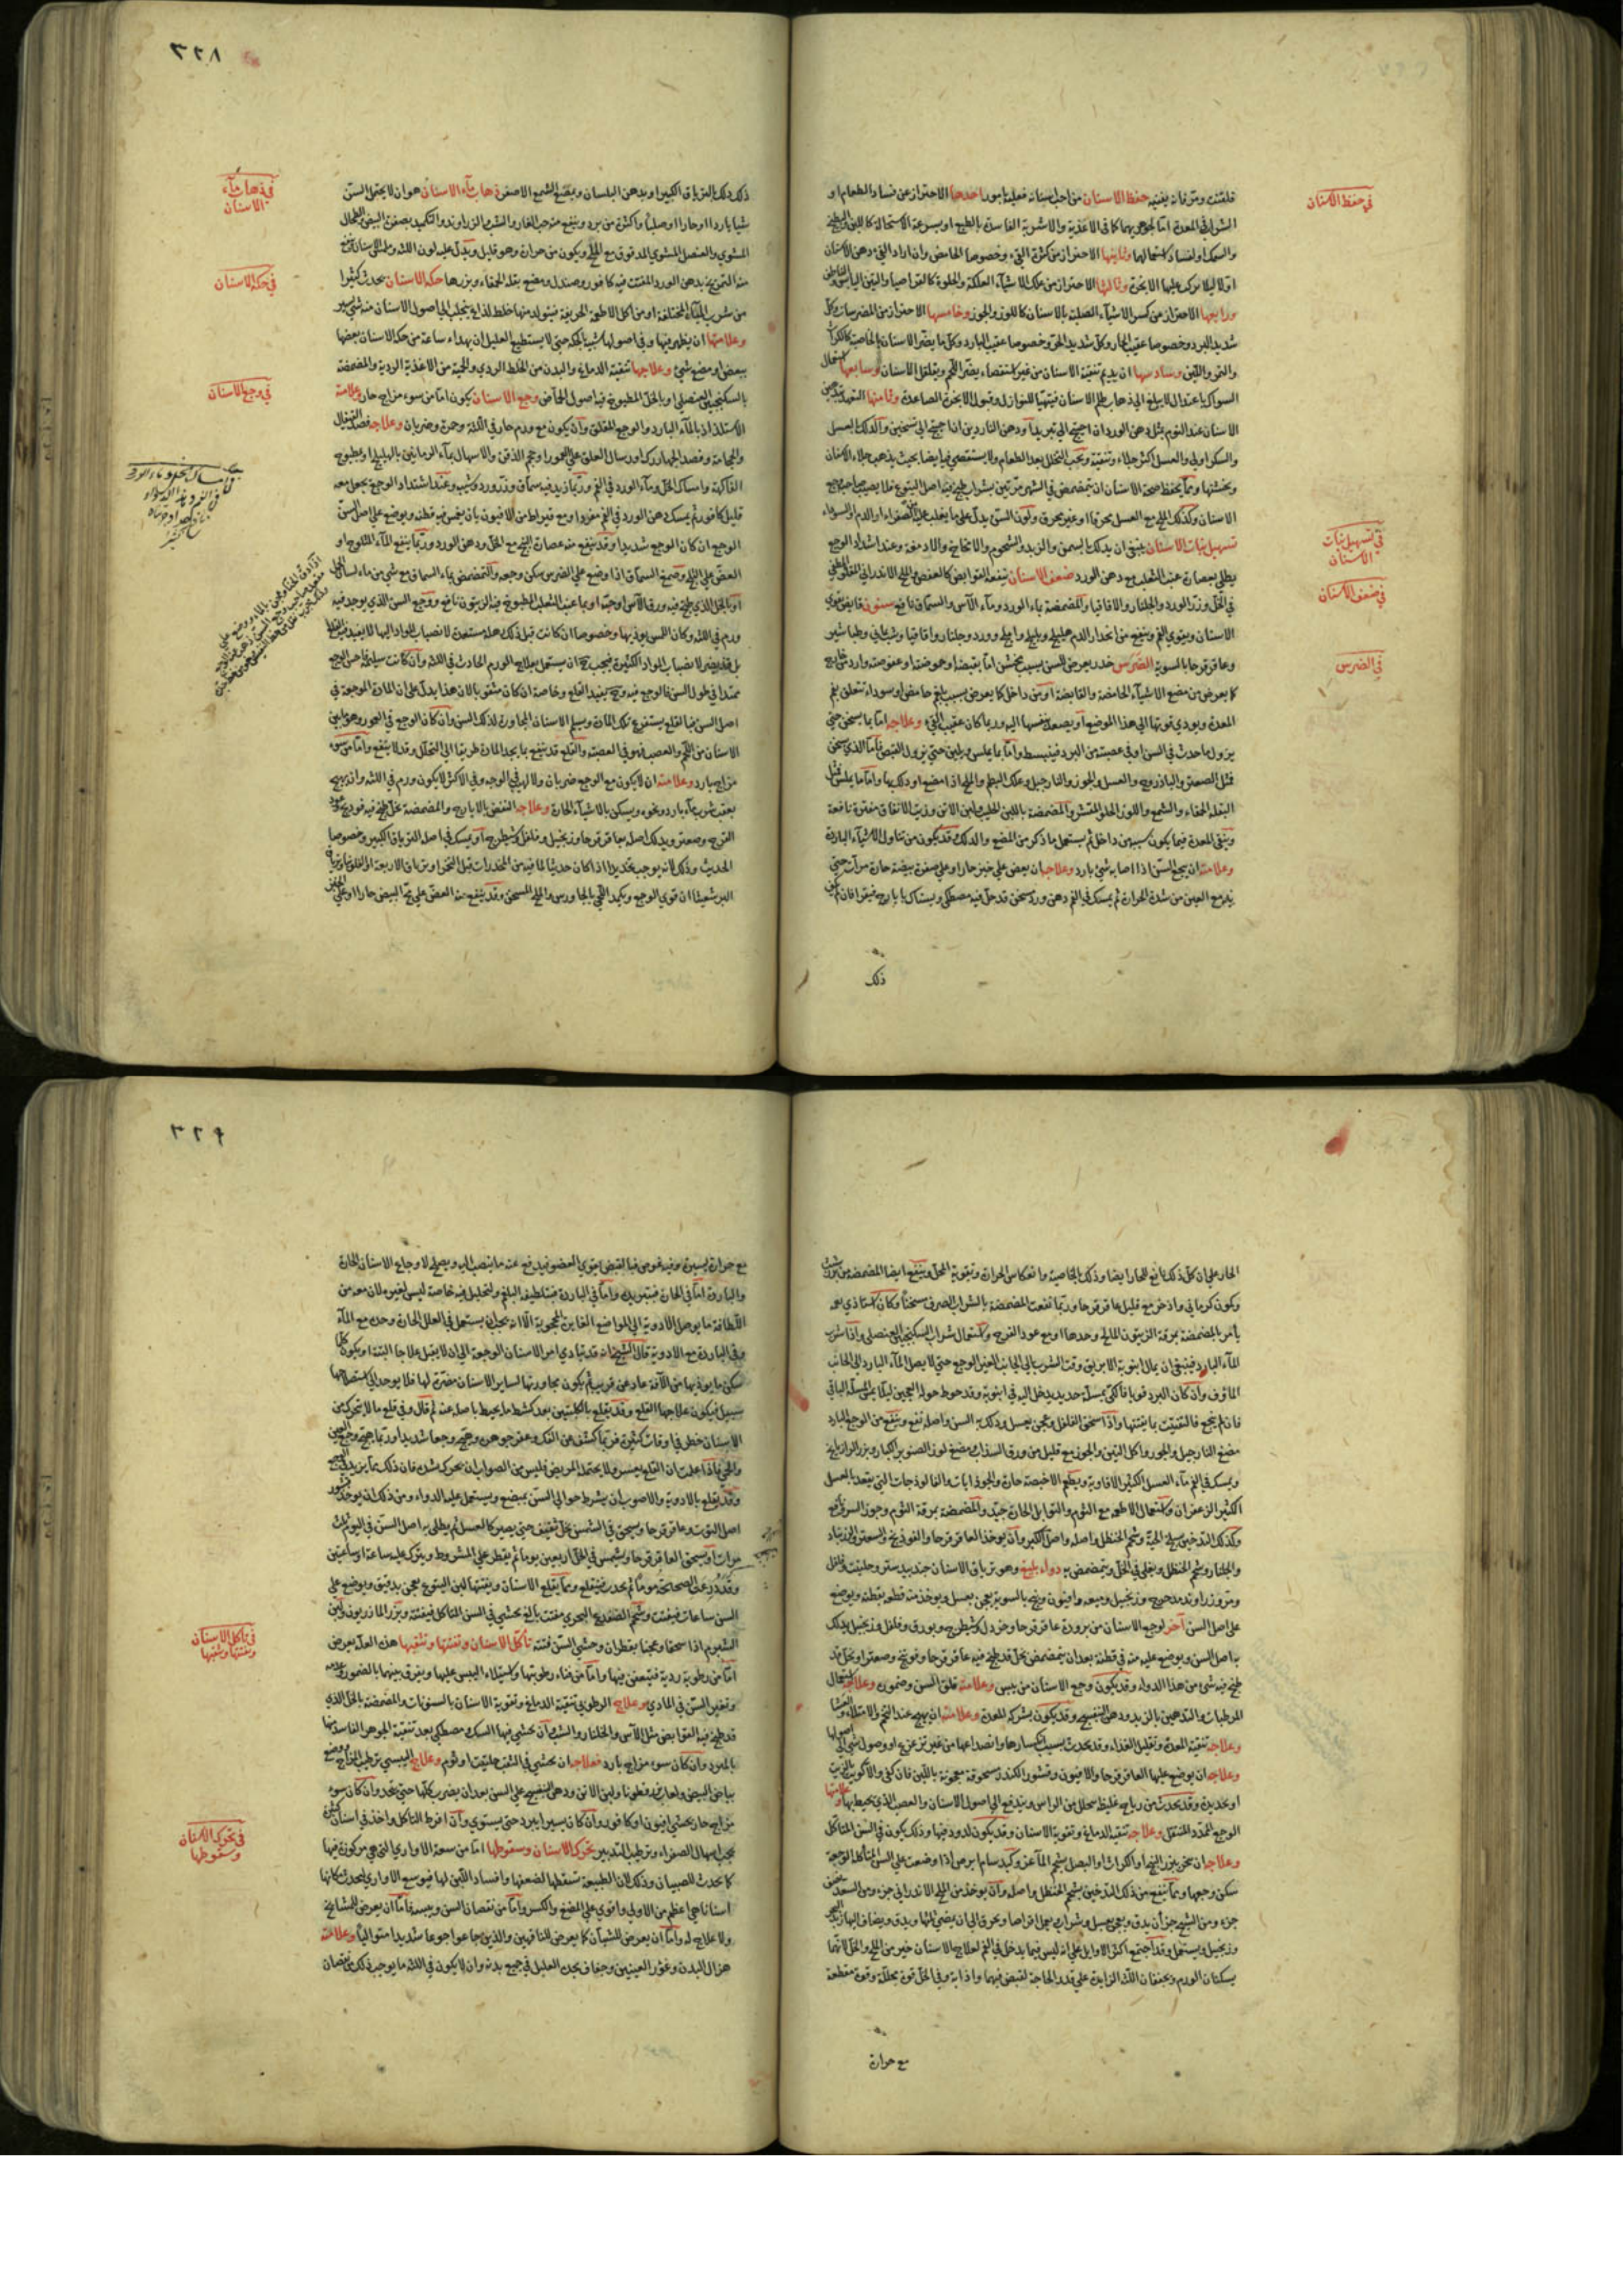 في حفظ الاسنان
فلفتت ومر فانه يغنيه حفظ الاسنان من احب اسنانه فعليه بامور احدها الاحتراز عن فساد الطعام او
الشراب في المعدة اما لجوهرهما كما في الاغذية والاشربة الفاسدة بالطبع او بسرعة الاستحالة كاللبن
والسمك او لفساد استعمالها وثانيها الاحتراز من كثرة القيء وخصوصا الحامض وان اراد القيء دهن الاسنان
اولا ليلا يركب عليها الابخرة وثالثها الاحتراز من علك الاشياء العلكة والحلوة كالقراصيا والتين اليابس
ورابعها الاحتراز من كسر الاشياء الصلبة بالاسنان كاللوز والجوز وخامسها الاحتراز من المضرسات وكل
شديد البرد وخصوصا عقيب الحار وكل شديد الحر وخصوصا عقيب البارد وكل ما يضر الاسنان بالخاصية كالكراث
والتمر واللبن وسادسها ان يديم تنقية الاسنان من غير استقصاء يضر اللحم ويقلقل الاسنان وسابعها استعمال
السواك باعتدال لا يبلغ الى ذهاب ظلم الاسنان فيتهيا للنوازل وقبول الابخرة الصاعدة وثامنها التعهد بتدهين
الاسنان عند النوم بمثل دهن الورد ان احتيج الى تبريد او دهن الناردين اذا احتيج الى تسخين والدلك بالعسل
والسكر اولى والعسل اكثر جلاء وتنقية ويجب التخلل بعد الطعام ولا يستقصي فيه ايضا بحيث يذهب جلاء الاسنان
ويخشنها ومما يحفظ صحة الاسنان ان يتمضمض في الشهر مرتين بشراب طبخ فيه اصل اليتوع فلا يصيب صاحبه وجع
الاسنان وكذلك الملح مع العسل محرقا او غير محرق ولون السن يدل على ما يغلب عليه من الصفراء او الدم او السوداء
في تسهيل نبات الاسنان
تسهيل نبات الاسنان ينبغي ان يدلك بالسمن والزبد والشحوم والامخاخ والادمغة وعند اشتداد الوجع
في ضعف الاسنان
يطلى بعصارة عنب الثعلب مع دهن الورد ضعف الاسنان تنفعه القوابض كالعفص والملح الاندراني المقلو المطفي
في الخل وزر الورد والجلنار والاقاقيا والمضمضة بماء الورد وماء الآس والسماق نافع سنون قابض يقوي
الاسنان ويقوي الفم وينفع من انحدار الدم هليلج وبليلج واملج وورد وجلنار واقاقيا وشب يماني وطباشير
في الضرس
وعاقرقرحا بالسوية الضرس خدر يعرض للسن بسبب مخشن اما بقبضه او حموضته او عفوصته وارد من خارج
كما يعرض من مضغ الاشياء الحامضة والقابضة او من داخل كما يعرض بسبب بلغم حامض او سوداء تتعلق بفم
المعدة ويودي قوتها الى هذا الموضع او يصعد بنفسها اليه وربما كان عقيب القيء وعلاجه اما بما يسخن حتى
يزول ما حدث في السن او في عصبته من البرد فينبسط واما بما يملس ويلين حتى يزول القبض فاما الذي يسخن
فمثل الصعتر والباذروج والعسل والجوز والنارجيل وعلك البطم والملح اذا مضغ او دلك بها واما ما يملس فمثل
البقلة الحمقاء والشمع واللوز الحلو المقشر والمضمضة باللبن الحليب ولبن الاتن وزيت الانفاق مفترة نافعة
وينقى المعدة فيما يكون سببه من داخل ثم يستعمل ما ذكر من المضغ والدلك وقد يكون من تناول الاشياء الباردة
وعلامته ان يجع السن اذا اصابه شيء بارد وعلاجه ان يعض على خبز حار او على صفرة بيضة حارة مرات حتى
يدمع العين من شدة الحرارة ثم يمسك في الفم دهن ورد مسخن قد حل فيه مصطكى ويستاك بايارج فيقرا فان لم يكن
ذلك
٣٢٨
في ذهاب ماء الاسنان
ذلك دلك بالترياق الكبير او بدهن البلسان ويمضغ الشمع الاصفر ذهاب ماء الاسنان هو ان لا يحتمل السن
شيا باردا او حارا او صلبا واكثره من برد وينفع منه حب الغار والشب والزراوند والتكميد بصفرة البيض والطحال
المشوي والعنصل المشوي المدقوق مع الملح ويكون من حرارة وهو قليل ويدل عليه لون اللثة وملمس الاسنان ينفع
في حكة الاسنان
منه التمريخ بدهن الورد المفتت فيه كافور وصندل ومضغ بقلة الحمقاء وبزرها حكة الاسنان يحدث كثيرا
من شرب المياه المختلفة او من اكل الاطعمة الحريفة فيتولد منها خلط لذاع ينجلب الى اصول الاسنان منه شيء يسير
وعلامتها ان يظهر فيها وفي اصولها شبيه بالحكة حتى لا يستطيع العليل ان يهداء ساعة من حك الاسنان بعضها
ببعض او مضغ شيء وعلاجها تنقية الدماغ والبدن من الخلط الردي والحمية من الاغذية الردية والمضمضة
في وجع الاسنان
بالسكنجبين العنصلي او بالخل المطبوخ فيه اصول الحماض وجع الاسنان يكون اما من سوء مزاج حار وعلامته
الاستلذاذ بالماء البارد والوجع المقلق وان يكون مع ورم حار في اللثة وحمرة وضربان وعلاجه فصد القيفال
والحجامة وفصد الجهارك وارسال العلق على العمور او حجم الذقن والاسهال بماء الرمانين بالهليلج او بمطبوخ
الفاكهة وامساك الخل وماء الورد في الفم وربما زيد فيه سماق وزر ورد وشب وعند اشتداد الوجع يجعل معه
قليل كافور ثم يمسك دهن الورد في الفم مفردا او مع قيراطين من الافيون بان يغمس فيه قطن ويوضع على اصل السن
الوجع ان كان الوجع شديدا وقد ينفع منه عصارة البنج مع الخل ودهن الورد وربما ينفع الماء المثلوج او
العض على الثلج وصمغ السماق اذا وضع على الضرس سكن وجعه والتمضمض بماء السماق مع شيء من ماء لسان الحمل
او بالخل الذي طبخ فيه ورق الآس او حبه او بماء عنب الثعلب المطبوخ فيه الزيتون نافع ووجع السن الذي يوجد فيه
ورم في اللثة وكان اللمس يوذيها وخصوصا ان كانت قبل ذلك هذه مستعدة لانصباب المواد اليها لا يفيد فيه القلع
بل قد يضر لانصباب المواد الكثيرة فيجب حينئذ ان يستعمل علاج الورم الحادث في اللثة وان كانت سليمة فاحس الوجع
ممتدا في طول السن فالوجع فيه وحينئذ يفيد القلع وخاصة ان كان مثقوبا لان هذا يدل على ان المادة الموجعة في
اصل السن فبالقلع يستفرغ تلك المادة ويسلم الاسنان المجاورة لذلك السن وان كان الوجع في العمور وهو ما بين
الاسنان من اللحم والعصب فهو في العصبة والقلع قد ينفع بما يجد المادة طريقا الى التحلل وقد لا ينفع واما من سوء
مزاج بارد وعلامته ان لا يكون مع الوجع ضربان ولا لهيب في الوجه وفي الاكثر لا يكون ورم في اللثة وان يهيج
بعقب شرب ماء بارد ونحوه ويسكن بالاشياء الحارة وعلاجه النفض بالايارج والمضمضة بخل طبخ فيه فودنج وعود
القرح وصعتر ويدلك اصله بعاقرقرحا وزنجبيل وفلفل وشيطرج او يمسك في اصله الترياق الكبير وخصوصا
الحديث وذلك لانه يوجب تخديرا اذا كان حديثا لما فيه من المخدرات قبل التخمر او ترياق الاربعة او الفلونيا وترياق
البرشعثا ان قوي الوجع ويكمد اللحي بالجاورس والملح المسخن وقد ينفع منه العض على مح البيض حارا او على الخبز
الحار على ان كل ذلك نافع للحار ايضا وذلك بالخاصية وانعكاس الحرارة وتقوية المحل وينفع ايضا المضمضة من
وكمون كرماني واذخر مع قليل عاقرقرحا وربما نفعت المضمضة بالشراب الصرف مسخنا وكان استاذي رحمه
يأمر بالمضمضة بمرقة الزيتون المالح وحدها او مع عود القرح واستعمال شراب السكنجبين العنصلي واذا شرب
الماء البارد فينبغي ان يمال انبوبة الابريق وقت الشرب الى الجانب الغير الوجع حتى لا يصل الماء البارد الى الجانب
الماوف وان كان البرد قويا فالكي بمسلة حديد يدخل اليه في انبوبة وقد حوط حوله العجين ليلا يمس المسلة الباقي
فان لم ينجع فالتفتيت بما يفتتها واذا سحق الفلفل وعجن بعسل ودلك به السن واصله نفع وينفع من الوجع البارد
مضغ النارجيل والجوز واكل التين والجوز مع قليل من ورق السذاب ومضغ لوز الصنوبر الكبار وبزر الرازيانج
ويمسك في الفم ماء العسل الكثير الافاوية ويطعم الاخبصة حارة والجوذابات والفالوذجات التي يتخذ بالعسل
الكثير الزعفران واستعمال الاطعمة مع الثوم والتوابل الحارة جيد والمضمضة بمرقة الثوم وجوز السرو نافع
وكذلك التدخين بسلخ الحية وشحم الحنظل واصله واصل الكبر وان يوخذ العاقرقرحا والفودنج والسعتر والزرنباد
والجلنار وشحم الحنظل ويغلى في الخل ويتمضمض به دواء بليغ وهو ترياق الاسنان جندبيدستر وحلتيت وفلفل
ومر وزراوند مدحرج وزنجبيل وميعة وافيون وبنج بالسوية يعجن بعسل ويوخذ منه قطور بقطنة ويوضع
على اصل السن آخر لوجع الاسنان من برودة عاقرقرحا وخردل وشيطرج وبورق وفلفل وزنجبيل يدلك
به اصل السن ويوضع عليه منه في قطنة بعد ان يتمضمض بخل قد طبخ فيه عاقرقرحا وفوتنج وصعتر او بخل قد
طبخ فيه شيء من هذا الدواء وقد يكون وجع الاسنان من يبس وعلامته قلق السن وضموره وعلاجه استعمال
المرطبات والتدهين بالزبد ودهن البنفسج وقد يكون بشركة المعدة وعلامته ان يهيج عند التخم والامتلاء والغشا
وعلاجه تنقية المعدة وتقليل الغذاء وقد يحدث بسبب انكسارها وانصداعها من غير تزعزع او وصول شيء الى اصولها
وعلاجه ان يوضع عليها العاقرقرحا والافيون وقشور الكندر مسحوقة معجونة باللبن فان كفى والا كويت بالزيت
او بحديدة وقد يحدث من رياح غليظة تتحلل من الراس ويندفع الى اصول الاسنان والعصب الذي يحيط بها وعلامتها
الوجع الممدد المنتقل وعلاجه تنقية الدماغ وتقوية الاسنان وقد يكون لدود فيها وذلك يكون في السن المتاكل
وعلاجه ان يبخر ببزر البنج او الكراث او البصل بشحم الماعز وكبد سام ابرص اذا وضعت على السن المتاكلة الوجعة
سكن وجعها ومما ينفع من ذلك التدخين بشحم الحنظل واصله وان يوخذ من الملح الاندراني جزء ومن السعد
جزء ومن الشيح جزء ان يدق ويعجن بعسل وشراب ويعمل اقراصا ويحرق الى ان يمضي اثنها ويدق ويضاف اليها زبد البحر
وزنجبيل ويستعمل وقد اجتمع اكثر الاوايل على انه ليس فيما يدخل في الفم لعلاج الاسنان خير من الملح والخل لانهما
يسكنان الورم ويجففان اللثة الزايدة على قدر الحاجة لقبض فيهما واذابة وفي الخل قوة محللة وقوة مقطعة
مع حرارة
٣٢٩
مع حرارة يسيرة وفيه غوص فبالقبض يقوي العضو فيدفع عنه ما ينصب اليه ويصلح لاوجاع الاسنان الحارة
والباردة اما في الحارة فبتبريده واما في الباردة فبتلطيفه البلغم وتحليل فيه خاصة ليس لغيره لان معه من
اللطافة ما يوصل الادوية الى المواضع الغايرة المحجوبة الا انه يجب ان يستعمل في العلل الحارة وحده مع الماء
وفي الباردة مع الادوية قال الشيخ انه قد يتادى امر الاسنان الوجعة الى ان لا يقبل علاجا البتة او يكون كلما
سكن ما يوذيها من الآفة عاد عن قريب ثم يكون مجاورتها لساير الاسنان مضرة لها فلا يوجد الى استصلاحها
سبيل فيكون علاجها القلع وقد يقلع بالكلبتين بعد كشط ما يحيط باصله عنه ثم قال وفي قلع ما لا يتحرك من
الاسنان خطر في اوقات كثيرة فربما كشف عن الفك وعفر جوهره وهيج وجعا شديدا وربما هيج وجع العين
والحمى فاذا علمت ان القلع يعسر ولا يحتمله المريض فليس من الصواب ان يحركه بشدة فان ذلك مما يزيد في الوجع
وقد يقلع بالادوية والاصوب ان يشرط حوالي السن بمبضع ويستعمل عليه الدواء ومن ذلك ان يوخذ قشور
اصل التوت وعاقرقرحا ويسحق في الشمس بخل ثقيف حتى يصير كالعسل ثم يطلى به اصل السن في اليوم ثلث
مرات او يسحق العاقرقرحا ويشمس في الخل اربعين يوما ثم يقطر على المشروط ويترك عليه ساعة او ساعتين
وقد درعت الصحاح موما ثم يجذب فينقلع ومما يقلع الاسنان ويفتتها لبن اليتوع يعجن بدقيق ويوضع على
السن ساعات فيفتت وشحم الضفدع البحري مفتت بالغ يحشى في السن المتاكل فيفتته وبزر المازريون ولبن
في تاكل الاسنان وتفتتها وثقبها
الشبرم اذا سحقا وعجنا بقطران وحشي السن فتته تاكل الاسنان وتفتتها وتثقبها هذه العلة يعرض
اما من رطوبة ردية فيتعفن فيها واما من فناء رطوبتها واستيلاء اليبس عليها ويفرق بينهما بالضمور وعدمه
وتغير السن في المادي وعلاج الرطوبي تنقية الدماغ وتقوية الاسنان بالسنونات والمضمضة بالخل الذي
قد طبخ فيه القوابض مثل الآس والجلنار والشب وان يحشى فيها السك ومصطكى بعد تنقية الجوهر الفاسد منها
بالمبرد وان كان سوء مزاج بارد فعلاجه ان يحشى في الثقب حلتيت او ثوم وعلاج اليبسي ترطيب المزاج ووضع
بياض البيض ولعاب بزرقطونا ولبن الاتن ودهن البنفسج على السن بعد ان يضرب كلها حتى يتحد وان كان سوء
مزاج حار يحشى افيون او كافور وان كان يسيرا يبرد حتى يستوي وان افرط التاكل واخذ في اسنان كثيرة
في تحرك الاسنان وسقوطها
يجب اسهال الصفراء وترطيب التدبير تحرك الاسنان وسقوطها اما من سعة الاواري التي هي مركوزة فيها
كما يحدث للصبيان وذلك لان الطبيعة تسقطها لضعفها وافساد اللبن لها فيوسع الاواري ليحدث مكانها
اسنانا هي اعظم من الاولى واقوى على المضغ والكسر واما من نقصان السن ويبسه فاما ان يعرض للمشايخ
ولا علاج له واما ان يعرض للشبان كما يعرض للناقهين والذين جاعوا جوعا شديدا متواليا وعلامته
هزال البدن وغور العينين وجفاف يجده العليل في جميع بدنه وان لا يكون في اللثة ما يوجب ذلك من نقصان